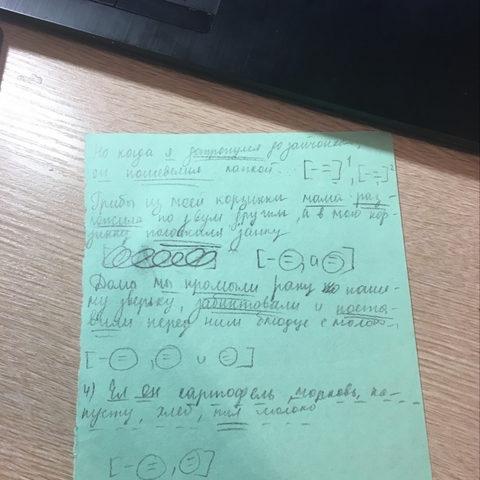 Но когда я дотронулся до зайчонка,
он пошевелил лапкой. [- =]¹, [- =]²
Грибы из моей корзинки мама раз-
по двум другим, а в мою кор-
зинку положили зайку
[- =, а =]
Дома мы промыли рану наше-
му зверьку, забинтовали и поста-
вили перед ним блюдце с молок.
[- =, = и =]
4) Ел он картофель, морковь, ка-
пусту, хлеб, пил молоко
[- =, =]